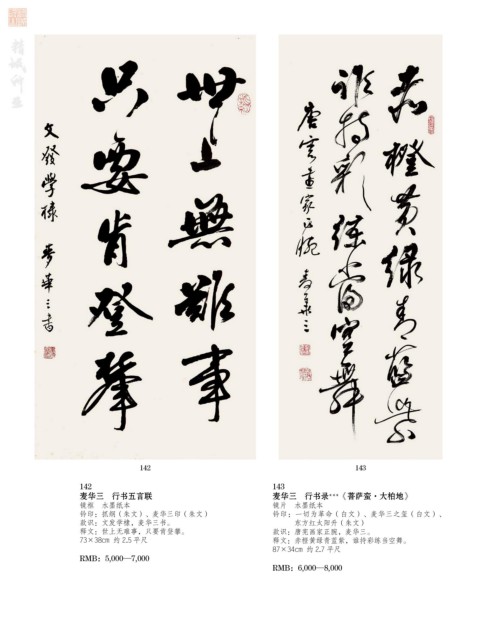 精诚所至
世上無難事
只要肯登攀
文發学棣 麦华三书
赤橙黄绿青蓝紫
谁持彩练当空舞
唐宪画家正腕 麦华三
142
143
142
麦华三 行书五言联
镜框 水墨纸本
钤印：抓纲（朱文）、麦华三印（朱文）
款识：文发学棣，麦华三书。
释文：世上无难事，只要肯登攀。
73×38cm 约2.5平尺
RMB: 5,000—7,000
143
麦华三 行书录***《菩萨蛮·大柏地》
镜片 水墨纸本
钤印：一切为革命（白文）、麦华三之玺（白文）、
东方红太阳升（朱文）
款识：唐宪画家正腕，麦华三。
释文：赤橙黄绿青蓝紫，谁持彩练当空舞。
87×34cm 约2.7平尺
RMB: 6,000—8,000